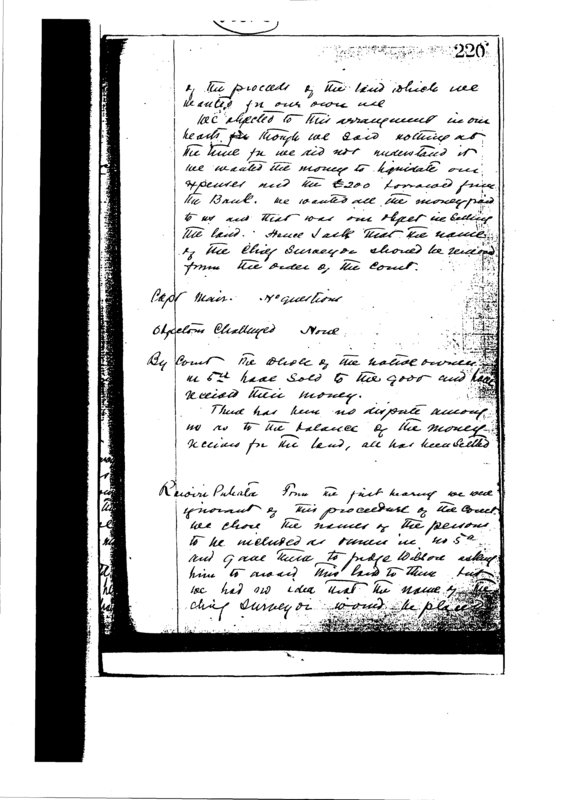 220
of the proceeds of the land which we
wanted for our own use
We objected to this arrangement in our
hearts for though we said nothing at
the time for we did not understand it
we wanted the money to liquidate our
expenses and the £200 borrowed from
the Bank. We wanted all the money paid
to us and that was our object in selling
the land. Hence I ask that the name
of the Chief Surveyor should be removed
from the order of the Court.
Capt Mair. No questions
Objectors Challenged None
By Court The whole of the native owners
in 5 have sold to the Govt and have
received their money.
There has been no dispute among
us as to the balance of the money
received for the land, all has been settled
From the first hearing we were
ignorant of this procedure of the Court
we chose the names of the persons
to be included as owners in No 5
and gave them to Judge asking
him to award this land to them but
we had no idea that the name of the
Chief Surveyor would be placed